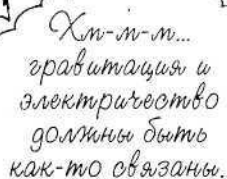 Хм-м-м...
гравитация и
электричество
должны быть
как-то связаны.